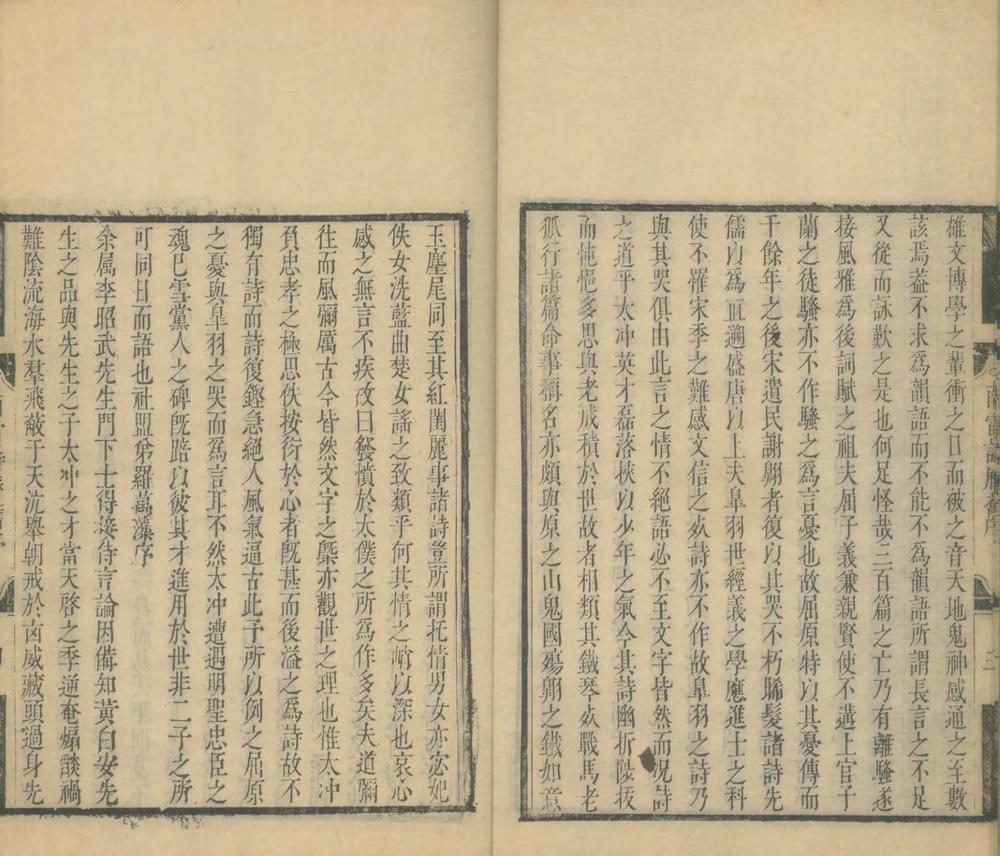 雄文博學之輩衝之口而被之音天地鬼神感通之至數
該焉葢不求爲韻語而不能不爲韻語所謂長言之不足
又從而詠歎之是也何足怪哉三百篇之亡乃有離騷遂
接風雅爲後詞賦之祖夫屈子義兼親賢使不遘上官子
蘭之徒騷亦不作騷之爲言憂也故屈原特以其憂傳而
千餘年之後宋遺民謝翺者復以其哭不朽晞髮諸詩先
儒以爲直遡盛唐以上夫臯羽世經義之學應進士之科
使不罹宋季之難感文信之效詩亦不作故臯羽之詩乃
與其哭俱由此言之情不絕語必不至文字皆然而況詩
之道乎太冲英才磊落挾以少年之氣今其詩幽折陗拔
而怆悒多思與老成積於世故者相類其鐵琴欤戰馬老
狐行諸篇命事稱名亦頗與原之山鬼國殤翺之鐵如意
玉麈尾同至其紅閨麗事諸詩豈所謂托情男女亦宓妃
佚女洗藍曲楚女謠之致類乎何其情之峭以深也哀心
感之無言不疾故曰發憤於太僕之所爲作多矣夫道彌
往而風彌厲古今皆然文字之槩亦觀世之理也惟太冲
負忠孝之極思佚按衍於心者旣甚而後溢之爲詩故不
獨有詩而詩復鏗急絕人風氣逼古此予所以例之屈原
之憂與臯羽之哭而爲言耳不然太冲遭遇明聖忠臣之
魂已雪黨人之碑旣踣以彼其才進用於世非二子之所
可同日而語也社盟弟羅萬藻序
余属李昭武先生門下士得接侍言論因備知黃白安先
生之品與先生之子太冲之才當天啓之季逆奄煽談禍
難陰流海水羣飛蔽于天沈舉朝戒於卤威藏頭過身先